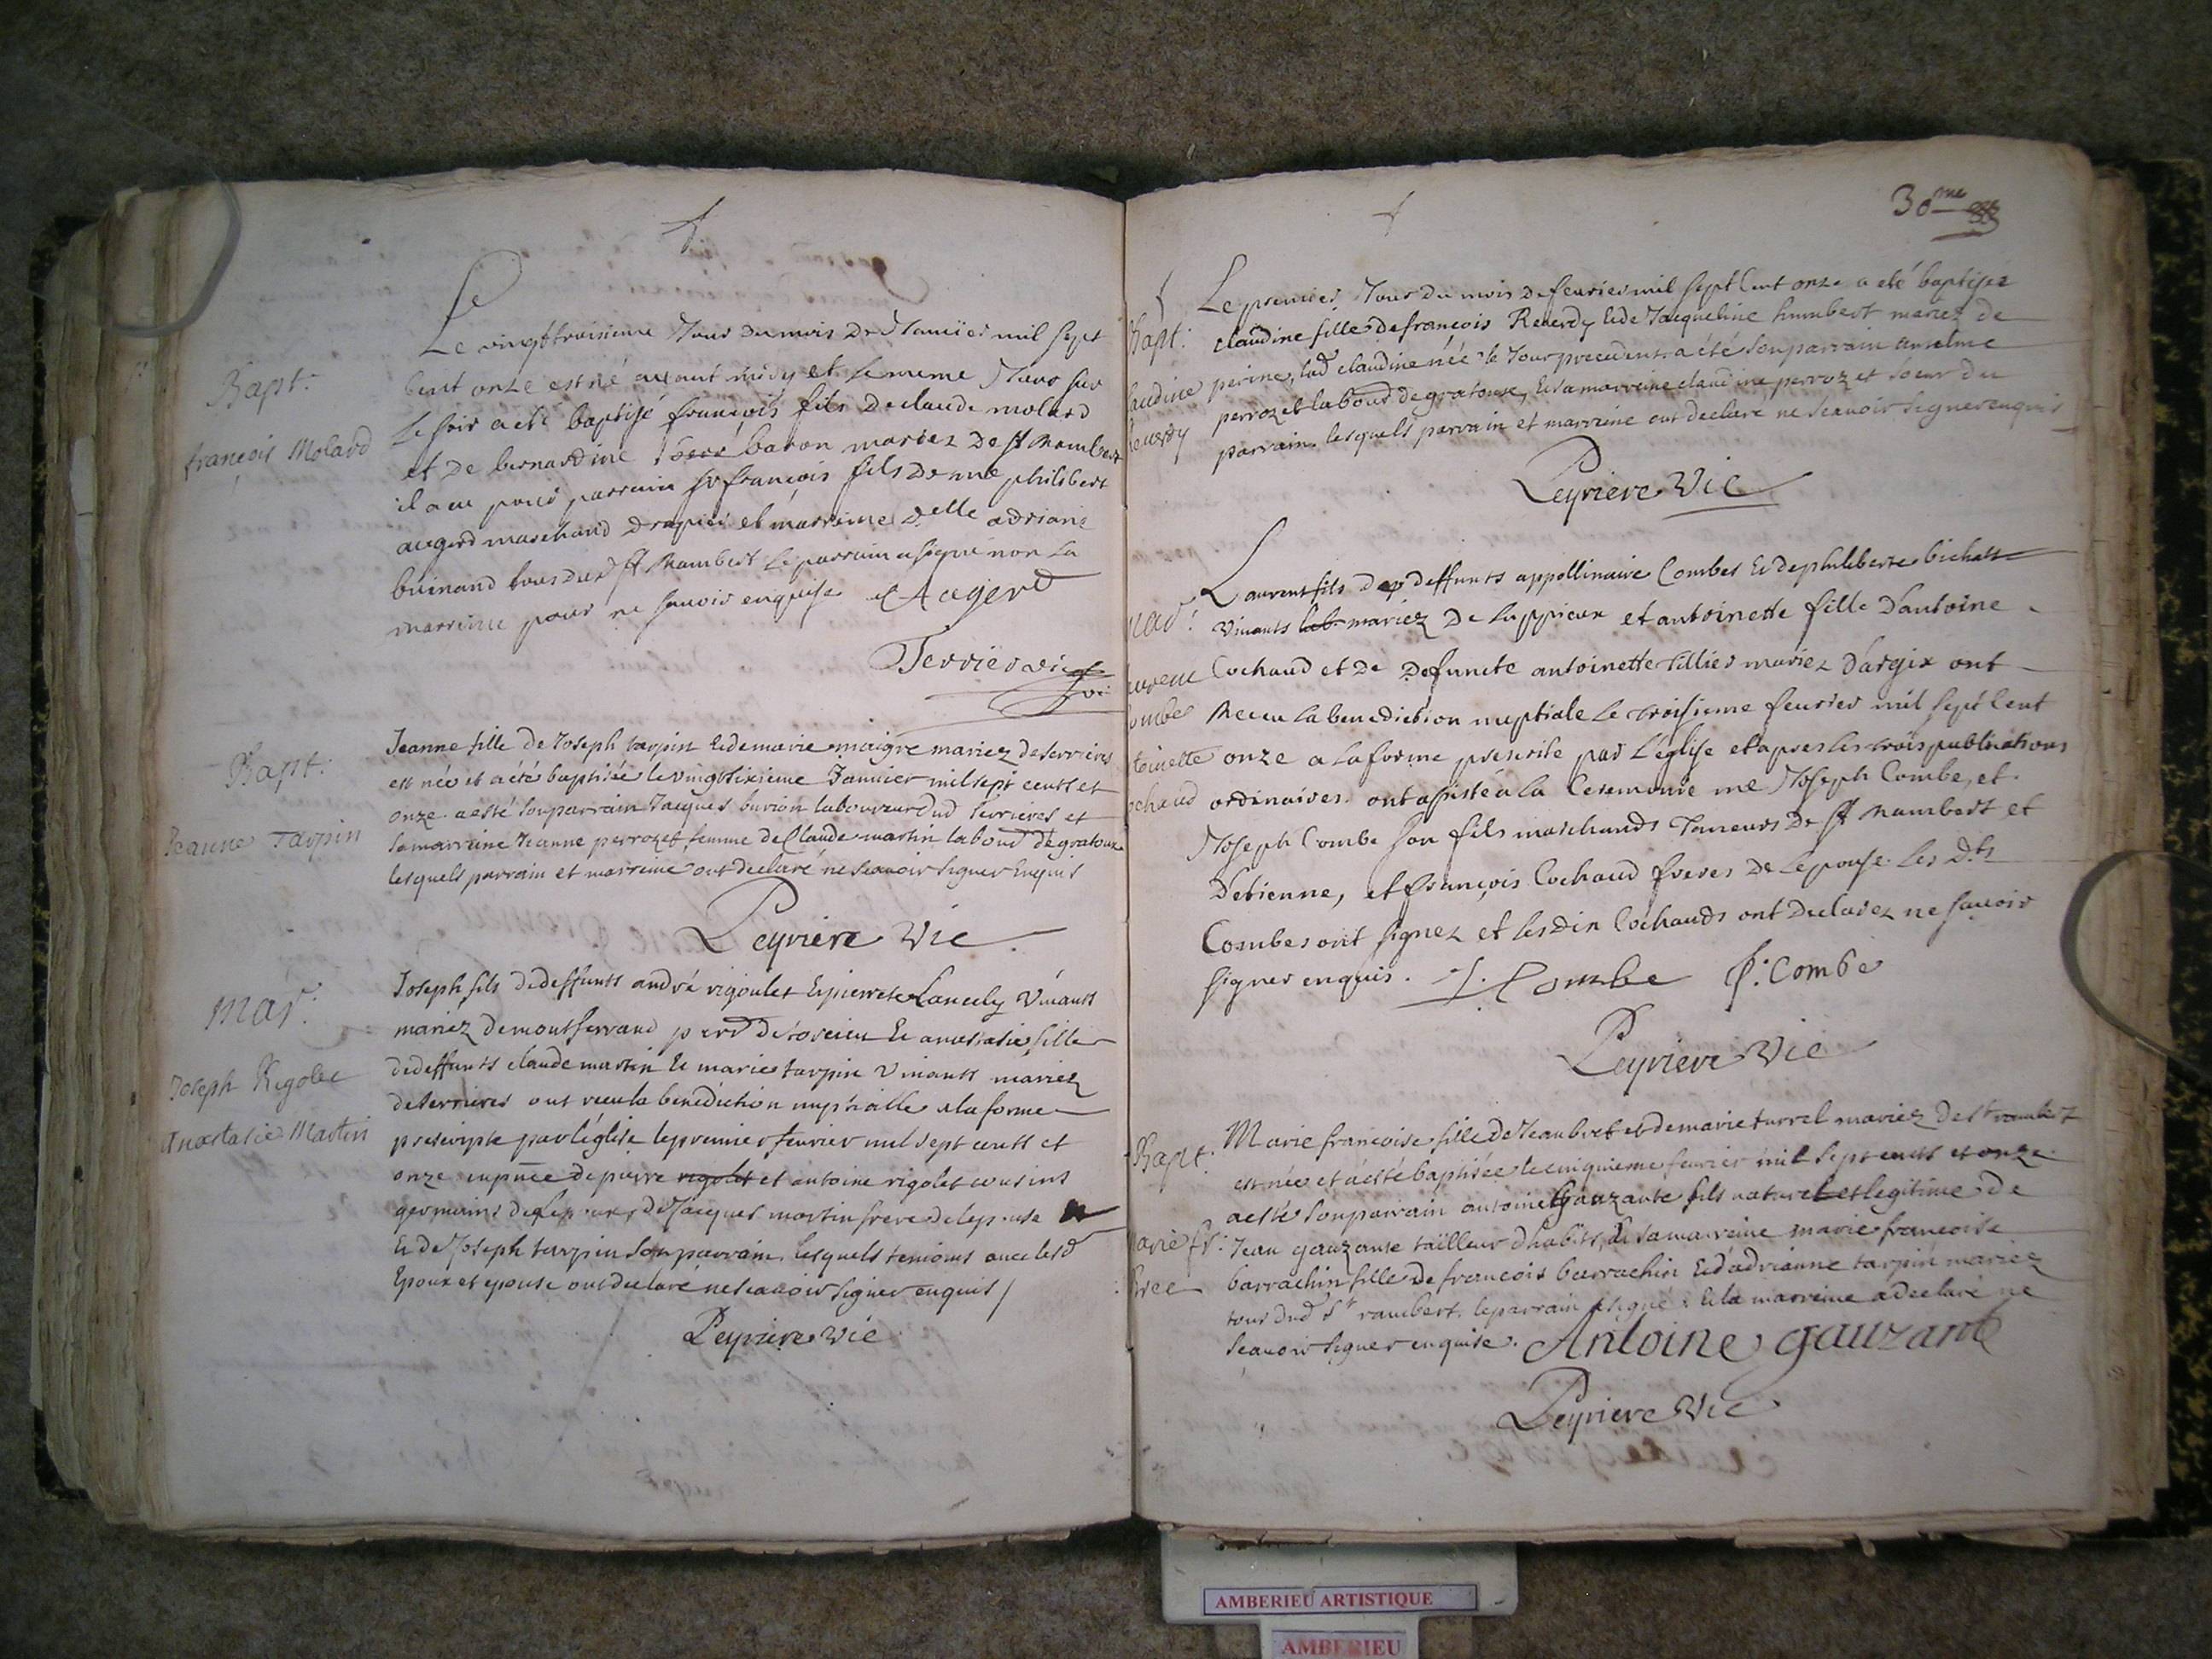 Bapt.
françois Molard
Le vingttroisieme Jour du mois de Janvier mil sept
Cent onze est né avant midy et le meme Jour sur
le soir a eté baptisé françois fils de claude molard
et de bernardine baron mariez de st Rambert
il a eu pour parrain sr françois fils de me philibert
augerd marchand drapier et marreine delle adriane
buinand tous dud st Rambert le parrain a signé non la
marreine pour ne savoir enquise Augerd
Terrier vic
Bapt.
Jeanne Tarpin
Jeanne fille de Joseph tarpin & de marie maigre mariez de serrieres
est née et a été baptisée le vingtsixieme Janvier mil sept cents et
onze a esté son parrain Jacques burion laboureur dud serrieres et
sa marraine Jeanne perrozet femme de Claude martin labour de gratoux
lesquels parrain et marreine ont declaré ne scavoir signer Enquis
Peyriere Vic
Mar.
Joseph Rigolet
Anastasie Martin
Joseph fils de deffunts andré rigoulet & pierrete Lancely Vivants
mariez de montferrand & anastasie fille
de deffunts claude martin & marie tarpin Vivants mariez
de serrieres ont receu la benediction nuptialle a la forme
prescripte par l'église le premier fevrier mil sept cents et
onze en pñce de pierre rigolet et antoine rigolet cousins
germains de l'epoux, de Jacques martin frere de lepouse
& de Joseph tarpin son parrain, lesquels temoins avec lesd
Epoux et epouse ont declaré ne scavoir signer enquis /
Peyriere vic
30me
Bapt.
laudine
Reverdy
Le premier Jour du mois de fevrier mil sept Cent onze a eté baptisée
claudine fille de francois Reverdy & de Jacqueline humbert mariez de
perine, lad claudine née le Jour precedent a été son parrain anselme
perrozet labour de gratoux, & sa marreine claudine perrozet soeur du
parrain, lesquels parrain et marreine ont declare ne scavoir signer enquis
Peyriere Vic
mar.
Laurent fils de deffunts appollinaire Combes & de philiberte bichat
vivants lab mariez de suppieux et antoinette fille d'antoine
Cochaud et de defuncte antoinette Tillier mariez d'argix ont
Receu la benediction nuptiale le troisieme fevrier mil sept Cent
ombe
toinette
ochaud
onze a la forme prescrite par L'église et apres les trois publications
ordinaires. ont assisté a la Ceremonie me Joseph Combe, et
Joseph Combe son fils marchands Tanneurs de st Rambert et
d'etienne, et françois Cochaud freres de lepouse les dts
Combes ont signez et lesdits Cochauds ont declarez ne savoir
signer enquis. J. Combe J. Combe
Peyriere Vic
Bapt.
arie fr.
Marie francoise fille de Jean bret et de marie turrel mariez de st rambert
est née et a esté baptisée le cinquieme fevrier mil sept cents et onze
a esté son parrain antoine gauzante fils naturel et legitime de
Jean gauzante tailleur dhabits, & sa marreine marie francoise
barrachin fille de francois barrachin & d'adrianne tarpin mariez
tous dud St rambert. le parrain a signé & la marreine a declaré ne
scavoir signer enquise. Antoine gauzante
Peyriere Vic
AMBERIEU ARTISTIQUE
AMBERIEU